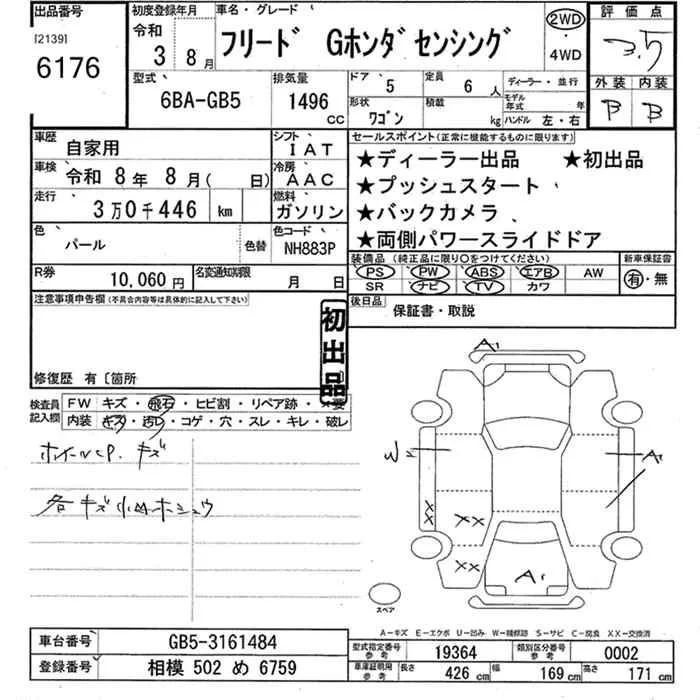 出品番号 初度登録年月 車名・グレード 2WD 評価点
[2139] 令和
6176 3年 8月 フリード Gホンダセンシング ・ 3.5
4WD
型式 排気量 ドア 5 定員 6 人 ディーラー・並行 外装 内装
6BA-GB5 1496 cc 形状 ワゴン 積載 kg モデル年式 年 B B
ハンドル 左・右
車歴 自家用 シフト IAT セールスポイント(正常に機能するものに限ります)
車検 令和 8年 8月( 日) 冷房 AAC ★ディーラー出品 ★初出品
走行 3万0千446 km 燃料 ガソリン ★プッシュスタート
★バックカメラ
色 パール 色替 色コード NH883P ★両側パワースライドドア
装備品(純正品に限り○をつけてください) 新車保証書
R券 10,060円 名変通知期限 月 日 PS PW ABS エアB AW 有・無
SR ナビ TV カワ
注意事項申告欄(不具合内容等は具体的に記入して下さい) 後日品 保証書・取説
初出品
修復歴 有〔箇所
検査員記入欄 FW キズ・飛石・ヒビ割・リペア跡・×要
内装 キズ・汚レ・コゲ・穴・スレ・キレ・破レ
A1
ホイールCP. キズ W2 A1
各キズ小凹ホシュウ XX XX
XX A1
スペア
A-キズ E-エクボ U-凹み W-補修跡 S-サビ C-腐食 XX-交換済
車台番号 GB5-3161484 型式指定番号 参考 19364 類別区分番号 参考 0002
登録番号 相模 502 め 6759 車庫証明用 参考 長さ 426 cm 幅 169 cm 高さ 171 cm